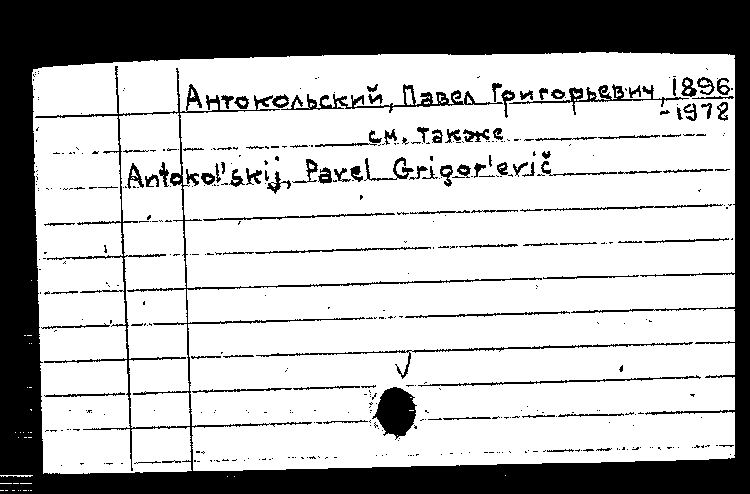 Антокольский, Павел Григорьевич, 1896
-1978
см. также
Antokol'skij, Pavel Grigor'evič